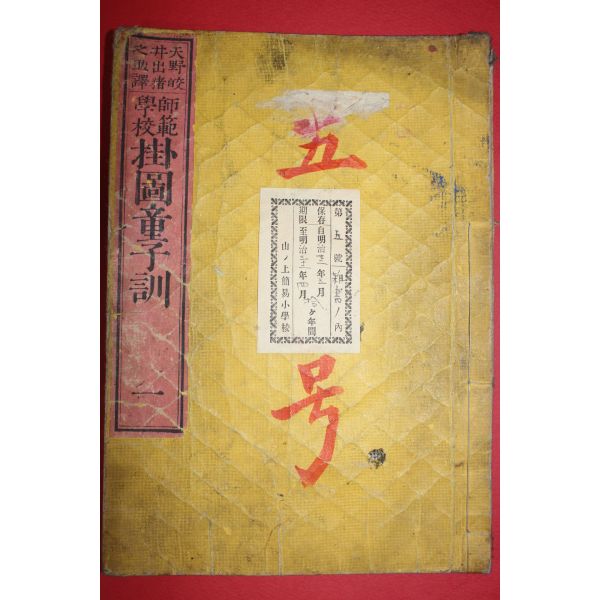 五号
第五號ノ內
保存自明治年月
期限至明治年四月
ケ年間
山ノ上簡易小學校
天野皎
井出猪
之助譯
師範
學校
掛圖童子訓
一